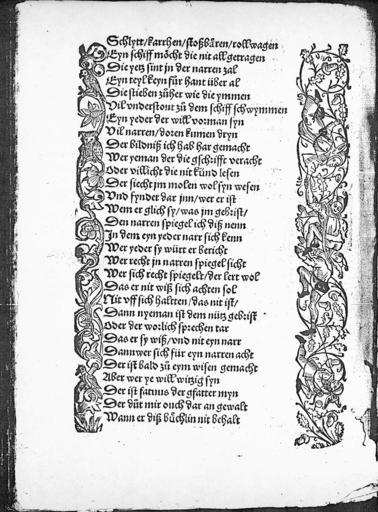 Schlytt/karrhen/stoßbären/rollwagen
Eyn schiff möcht die nit all getragen
Die yetz sint jn der narren zal
Eyn teyl keyn für hant über al
Die stieben zůher wie die ymmen
Vil vnderstont zů dem schiff schwymmen
Eyn yeder der will vorman syn
Vil narren/doren kumen dryn
Der bildniß ich hab har gemacht
Wer yeman der die gschrifft veracht
Oder villicht die nit künd lesen
Der siecht jm molen wol syn wesen
Vnd fyndet dar jnn/wer er ist
Wem er glich sy/was jm gebrist/
Den narren spiegel ich diß nenn
Jn dem eyn yeder narr sich kenn
Wer yeder sy würt er bericht
Wer recht jn narren spiegel sicht
Wer sich recht spiegelt/der lert wol
Das er nit wiß sich achten sol
Nit vff sich haltten/das nit ist/
Dann nyeman ist dem nütz gebrist
Oder der worlich sprechen tar
Das er sy wiß/vnd nit eyn narr
Dann wer sich für eyn narren acht
Der ist bald zů eym wisen gemacht
Aber wer ye will witzig syn
Der ist fatuus der gfatter myn
Der důt mir ouch dar an gewalt
Wann er diß büchlin nit behalt